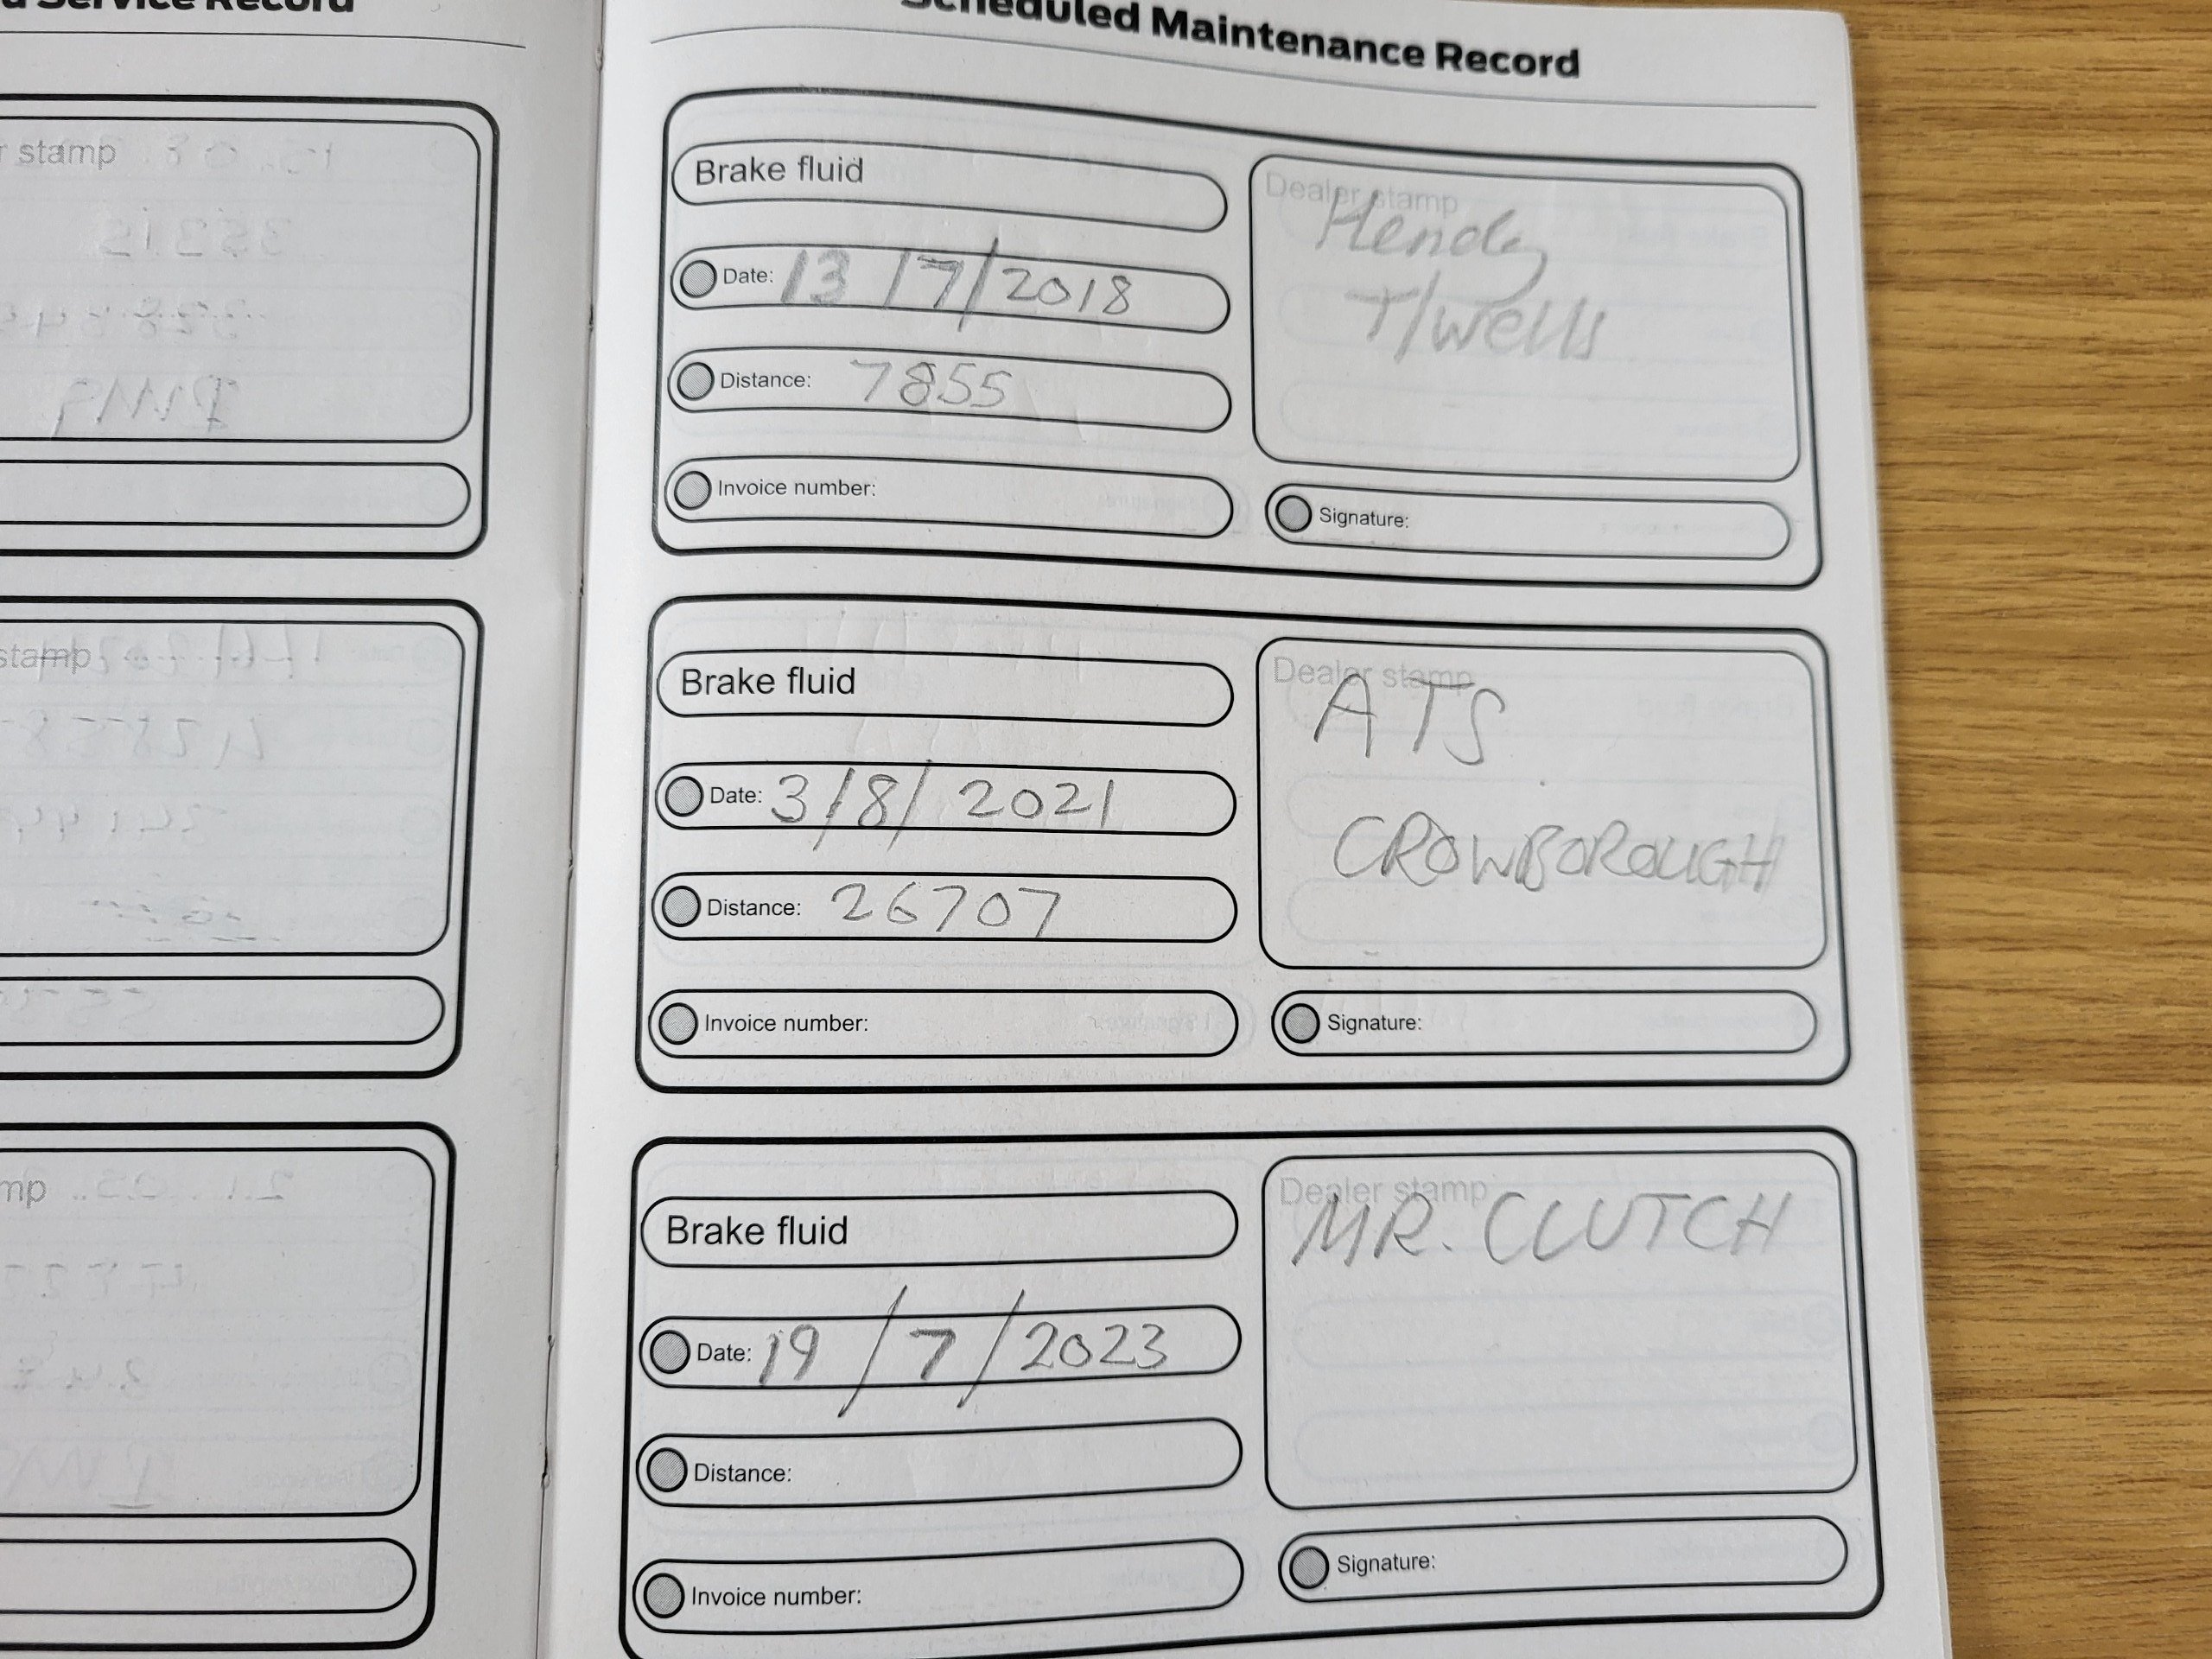 Service Record
stamp
stamp
Scheduled Maintenance Record
Brake fluid
Date: 13/7/2018
Distance: 7855
Invoice number:
Dealer stamp
Hendy
T/Wells
Signature:
Brake fluid
Date: 3/8/2021
Distance: 26707
Invoice number:
Dealer stamp
ATS
CROWBOROUGH
Signature:
Brake fluid
Date: 19/7/2023
Distance:
Invoice number:
Dealer stamp
MR. CLUTCH
Signature: